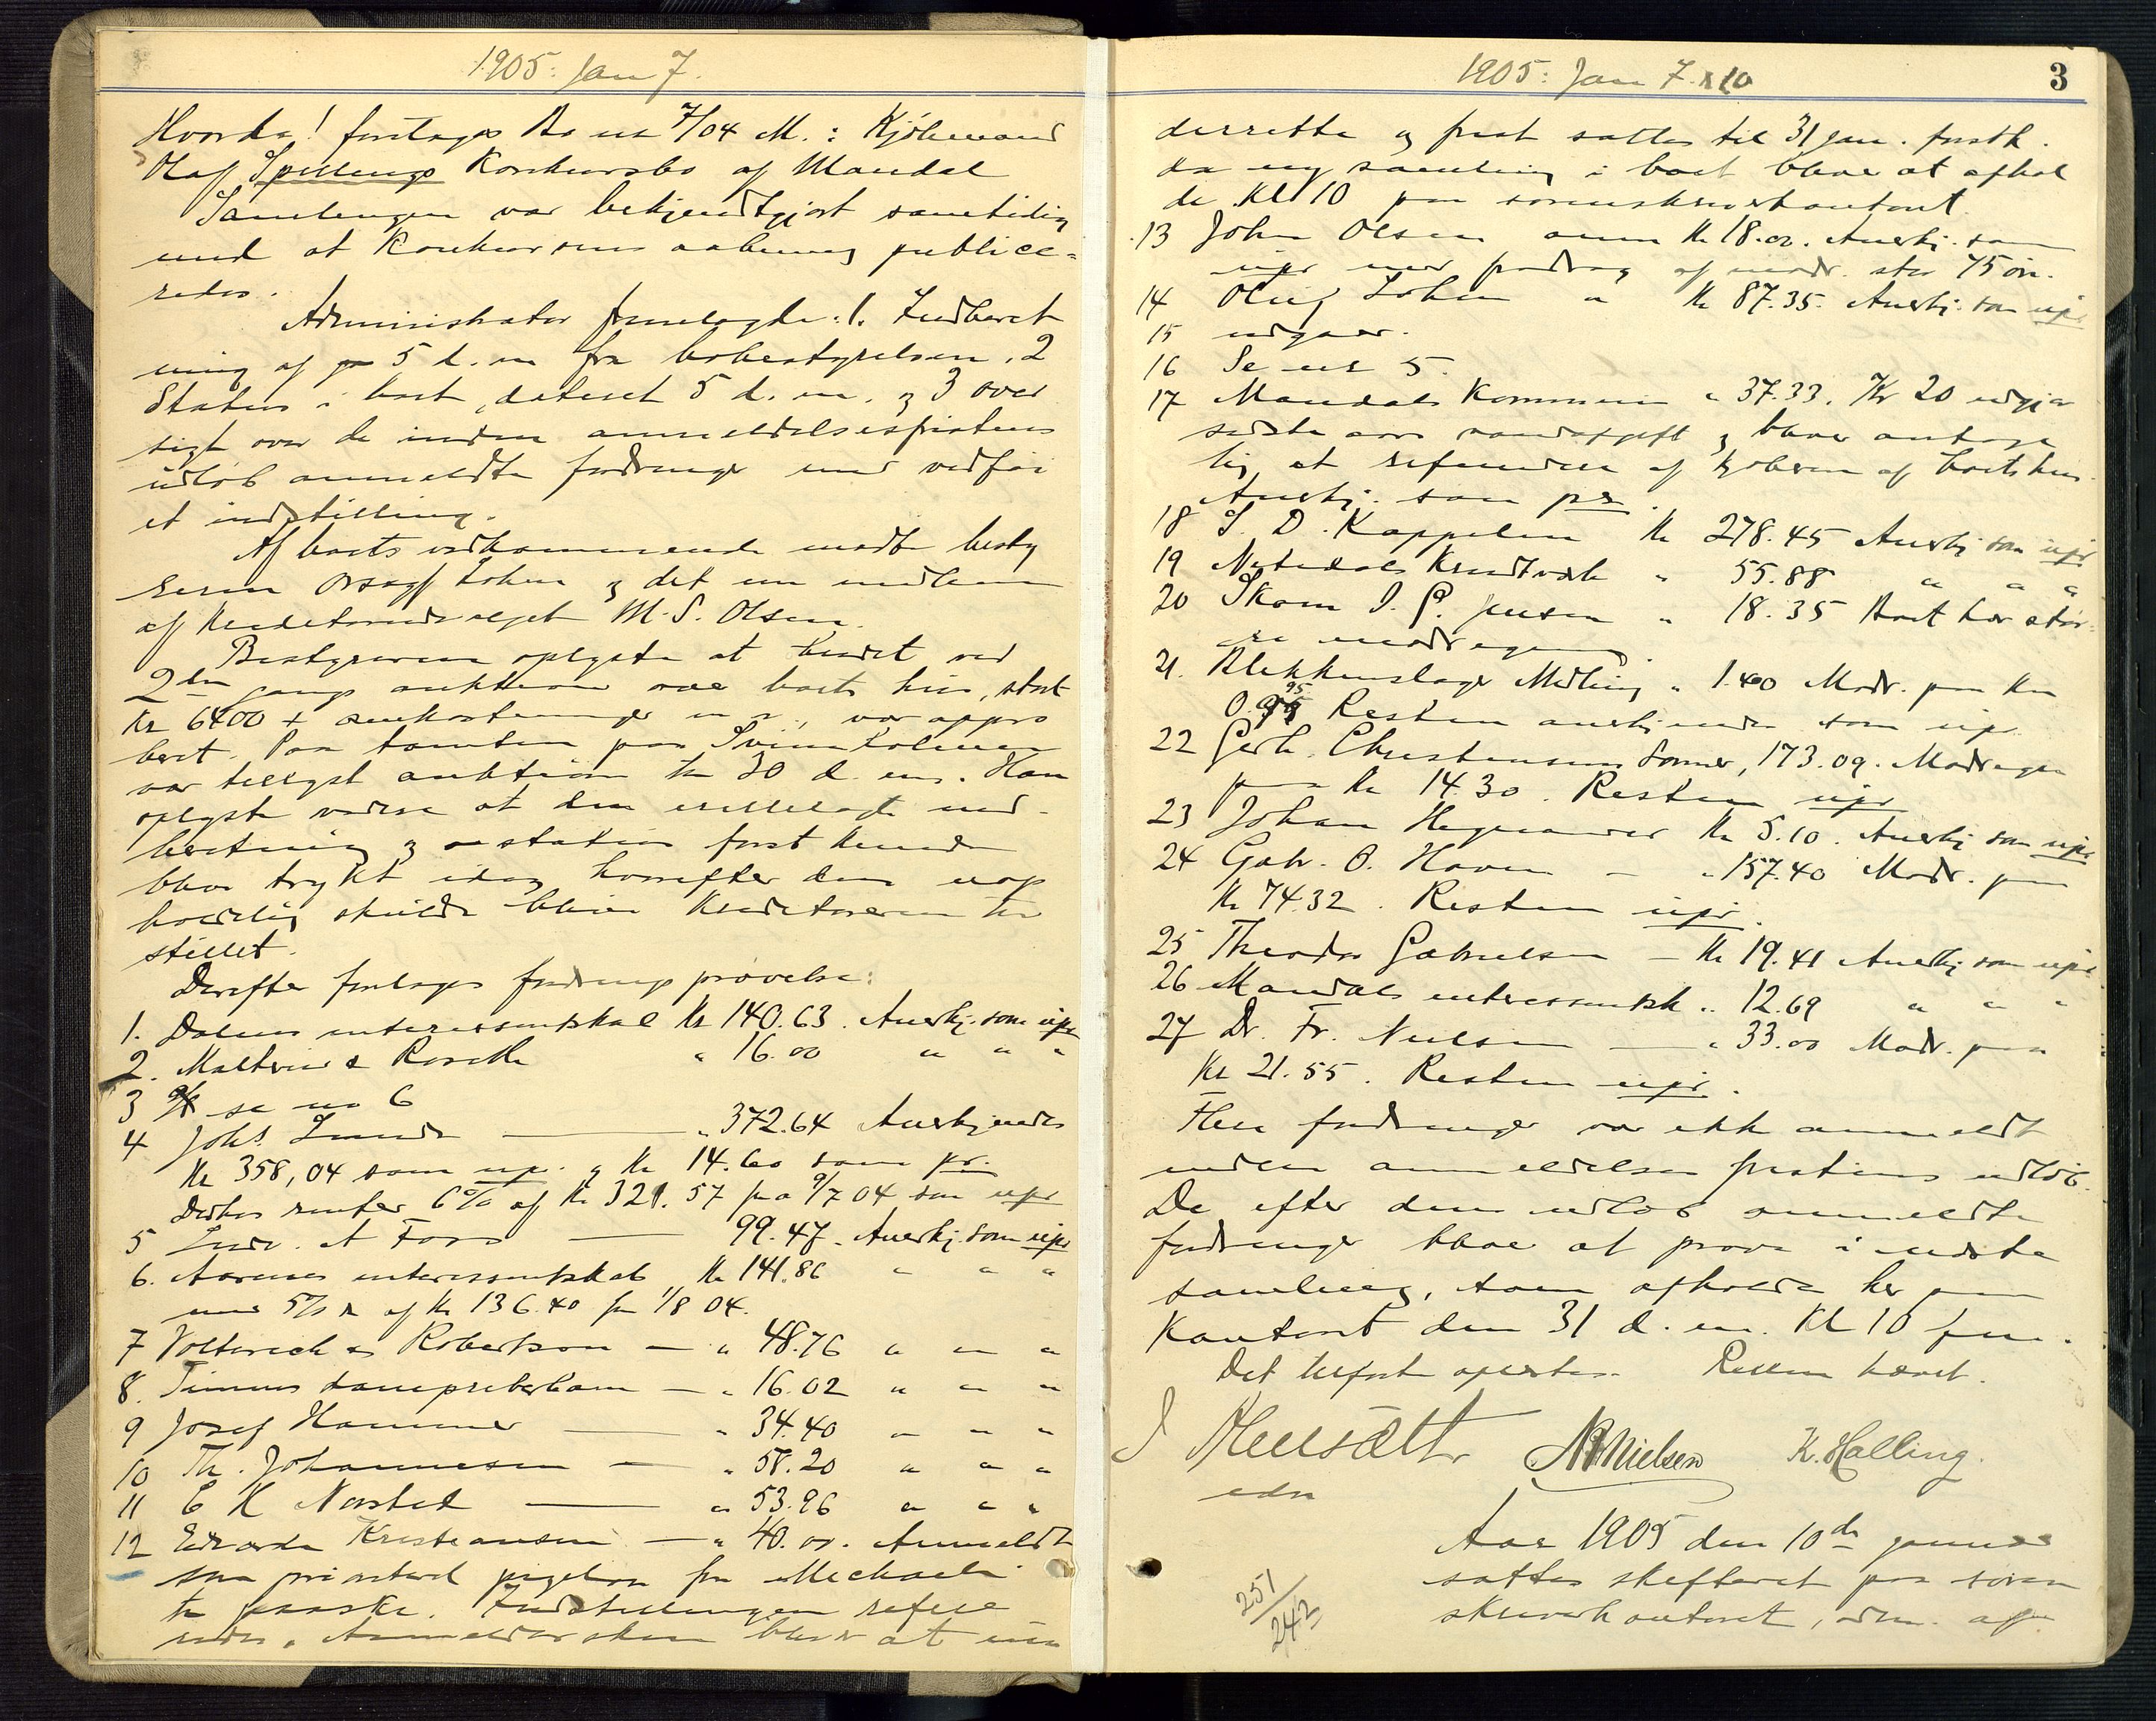 1905: Jan 7.
Hvorda! foretoges Bo no 7/04 M.: Kjøbmand
Olaf Spillings Konkursbo af Mandal
Samlingen var bekjendtgjort samtidig
med at Konkursens aabning publice-
redes.
Administrator fremlagde: 1. Indberet
ning af 5 d. m fra bobestyrelsen, 2
Status i boet, dateret 5 d. m. og 3 over
sigt over de inden anmeldelsesfristens
udløb anmeldte fordringer med vedføi
et indstilling.
Af boets vedkommende mødte besty
reren Ovsagf Lohne og det ene medlem
af Kreditorudvalget M. S. Olsen.
Bestyreren oplyste at budet ved
2den gangs auktion over boets hus, stort
Kr 6400 + omkostninger m. v., var appro
beret. Paa tomten paa Svinsholmen
var tillyst auktion til 30 d. m. Han
oplyste videre at den fremlagte ind-
beretning og status først kunde
blive trykt idag hvorefter den uop
holdelig skulde blive Kreditorerne til
stillet.
Derefter foretoges fordringsprøvelse:
1. Dalens interessentskab Kr 140.63. Anerkj. som upr
2. Malthius & Roscke " 16.00 " " "
3 se no 6
4 Johs. Lunde — " 372.64 Anerkjendes
Kr 358,04 som upr. og Kr 14.60 som pr.
Derhos renter 6% af Kr 321.57 fra 9/7 04 som upr
5 Ludv. A Foss — 99.47. Anerkj. som upr
6. Aarenes interessentskab Kr 141.86 " " "
med 5% r af Kr 136.40 fra 1/8 04.
7 Volterick & Robertson — " 48.76 " " "
8. Timms dampreberban — " 16.02 " " "
9 Josef Hammer — " 34.40 " " "
10 Th. Johannesen — " 58.20 " " "
11 E K Norsted — " 53.96 " " "
12 Edvarda Kristiansen — " 40.00. Anmeldt
som prioritert pigeløn fra Michaeli
til paaske. Indstillingen refere
redes. Anmeldersken bliver at un
1905: Jan 7. & 10
3
derrette og frist sattes til 31 jan. førstk.
da ny samling i boet bliver at afhol
de Kl 10 paa sorenskriverkontoret.
13 John Olsen anm Kr 18.00. Anerkj. som
upr med fradrag af modr. stor 75 øre.
14 Oluf Lohne " Kr 87.35. Anerkj. som upr
15 udgaar.
16 Se no 5.
17 Mandals Kommune " 37.33. Kr 20 udgjør
sidste aars vandafgift og bliver antage
lig at refundere af kjøberen af boets hus.
Anerkj. som pr.
18 S. D. Kappelen Kr 278.45 Anerkj som upr
19 Nitedals Krudtværk " 55.88 " " "
20 Skom J. G. Jensen " 18.35 Boet har stør
re modregning.
21. Blikkenslager Melling " 1.40 Modr. paa Kr
0.95 Resten anerkjendes som upr.
22 Gerh. Christensens Sønner, 173.09. Modregn
paa Kr 14.30. Resten upr
23 Johan Hegmander Kr 5.10. Anerkj som upr
24 Gabr. O. Haven — " 157.40 Modr. paa
Kr 74.32. Resten upr.
25 Theodor Gabrielsen — Kr 19.41 Anerkj som upr
26 Mandals interessentsk " 12.69 " " "
27 Dr. Fr. Nielsen — " 33.00 Modr. paa
Kr 21.55. Resten upr.
Flere fordringer var ikke anmeldt
inden anmeldelsesfristens udløb.
De efter dens udløb anmeldte
fordringer bliver at prøve i næste
samling, som afholdes her paa
Kontoret den 31 d. m. Kl 10 fm.
Det tilførte oplæstes. Retten hævet.
NB Nielsen K. Halling.
edsv
251/242
Aar 1905 den 10de januar
sattes skifteret paa soren
skriverkontoret, adm. af